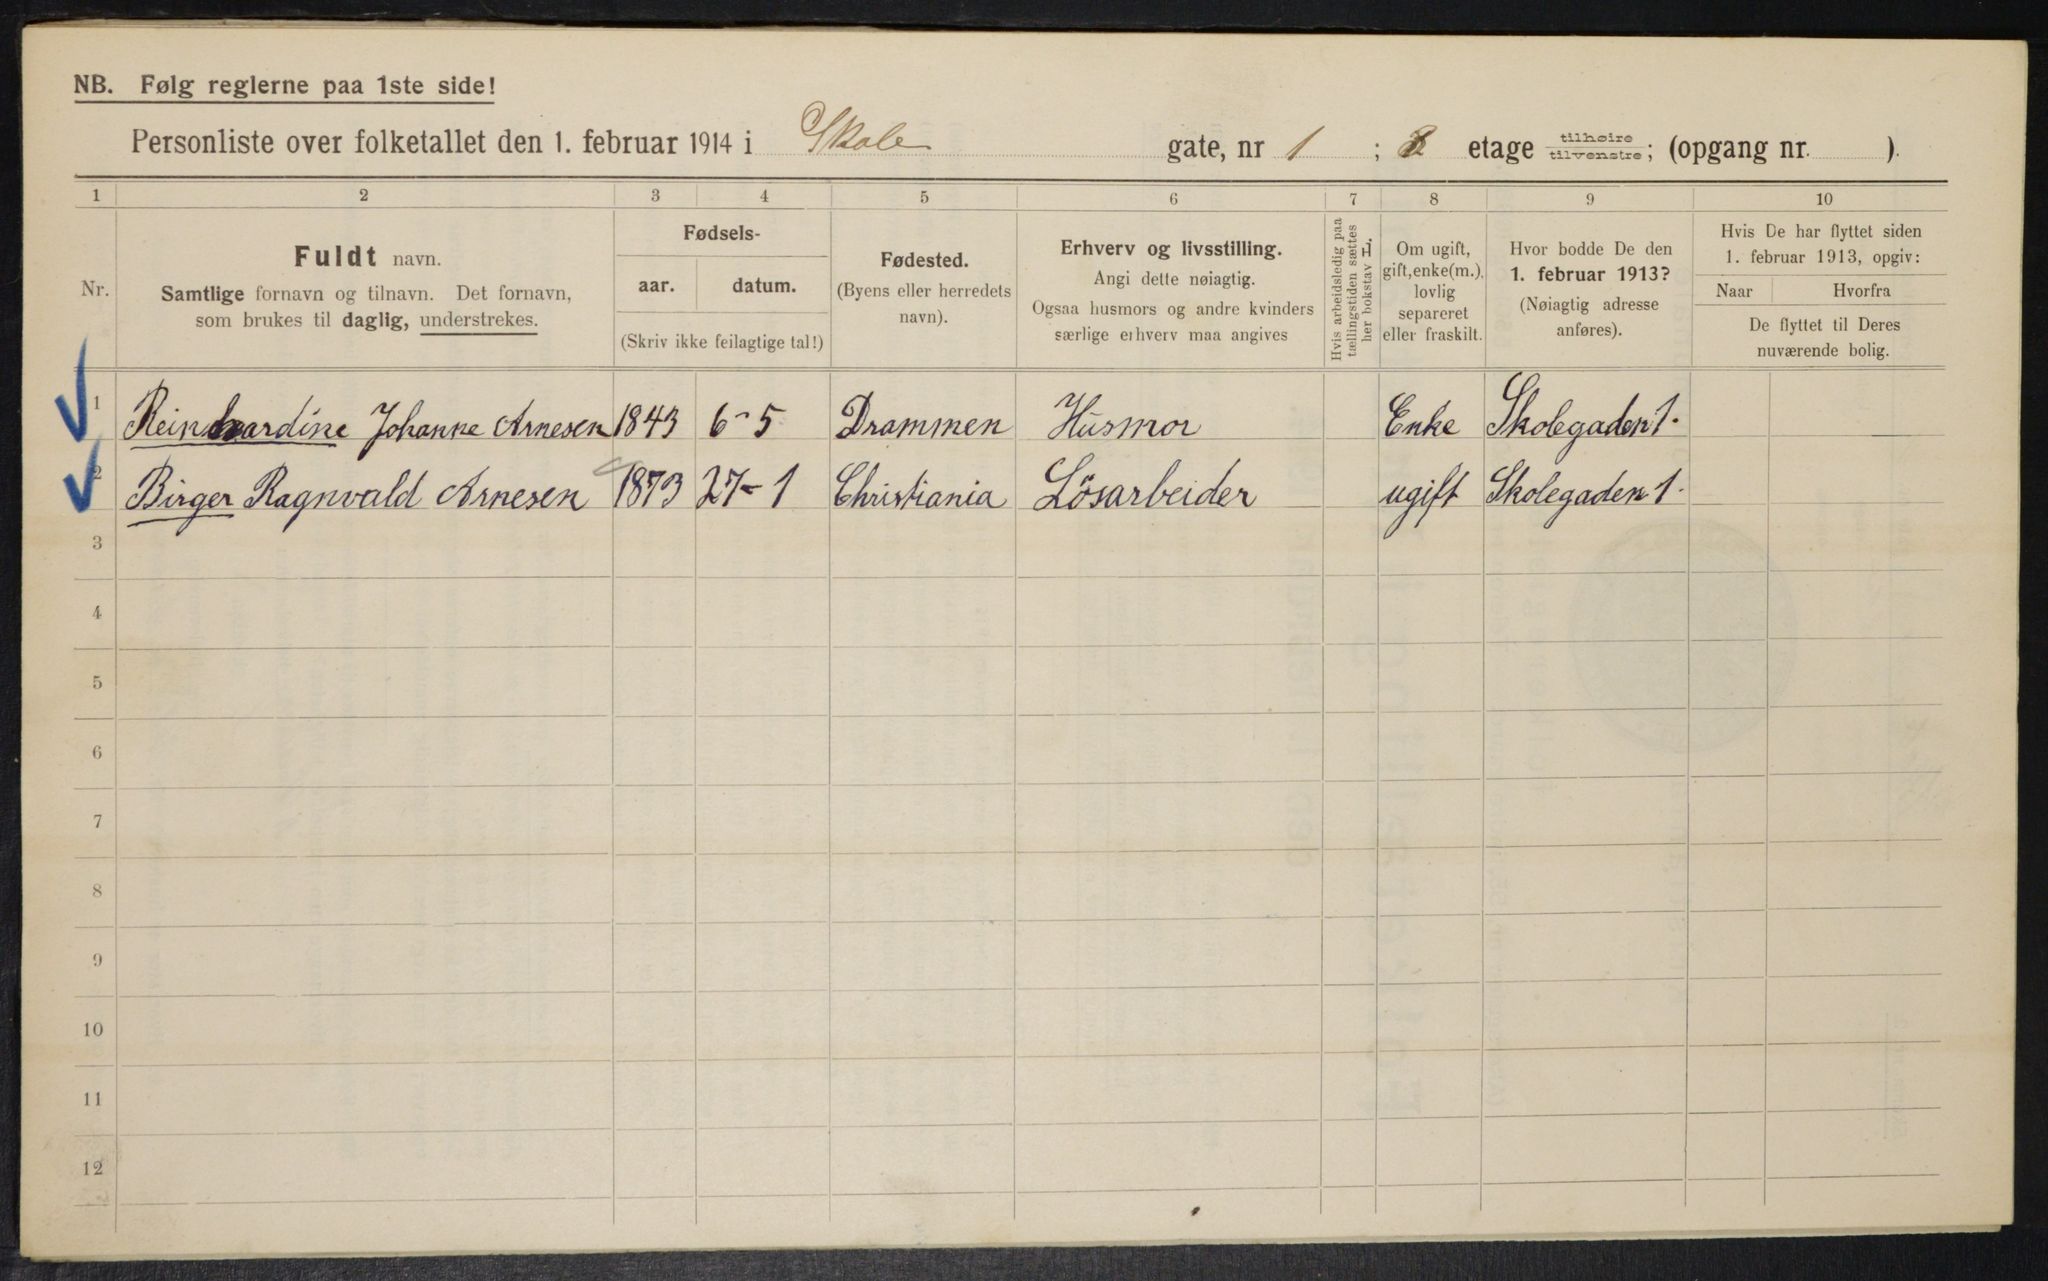 NB. Følg reglerne paa 1ste side!
Personliste over folketallet den 1. februar 1914 i Skole gate, nr 1 ; 2 etage tilhøire tilvenstre; (opgang nr. ).
1 2 3 4 5 6 7 8 9 10
Nr.
Fuldt navn.
Samtlige fornavn og tilnavn. Det fornavn,
som brukes til daglig, understrekes.
Fødsels-
aar. datum.
(Skriv ikke feilagtige tal!)
Fødested.
(Byens eller herredets
navn).
Erhverv og livsstilling.
Angi dette nøiagtig.
Ogsaa husmors og andre kvinders
særlige erhverv maa angives
Hvis arbeidsledig paa
tællingstiden sættes
her bokstav L
Om ugift,
gift, enke(m.),
lovlig
separeret
eller fraskilt.
Hvor bodde De den
1. februar 1913?
(Nøiagtig adresse
anføres).
Hvis De har flyttet siden
1. februar 1913, opgiv:
Naar Hvorfra
De flyttet til Deres
nuværende bolig.
1 Reinhardine Johanne Arnesen 1843 6-5 Drammen Husmor Enke Skolegaden 1.
2 Birger Ragnvald Arnesen 1873 27-1 Christiania Lösarbeider ugift Skolegaden 1.
3
4
5
6
7
8
9
10
11
12